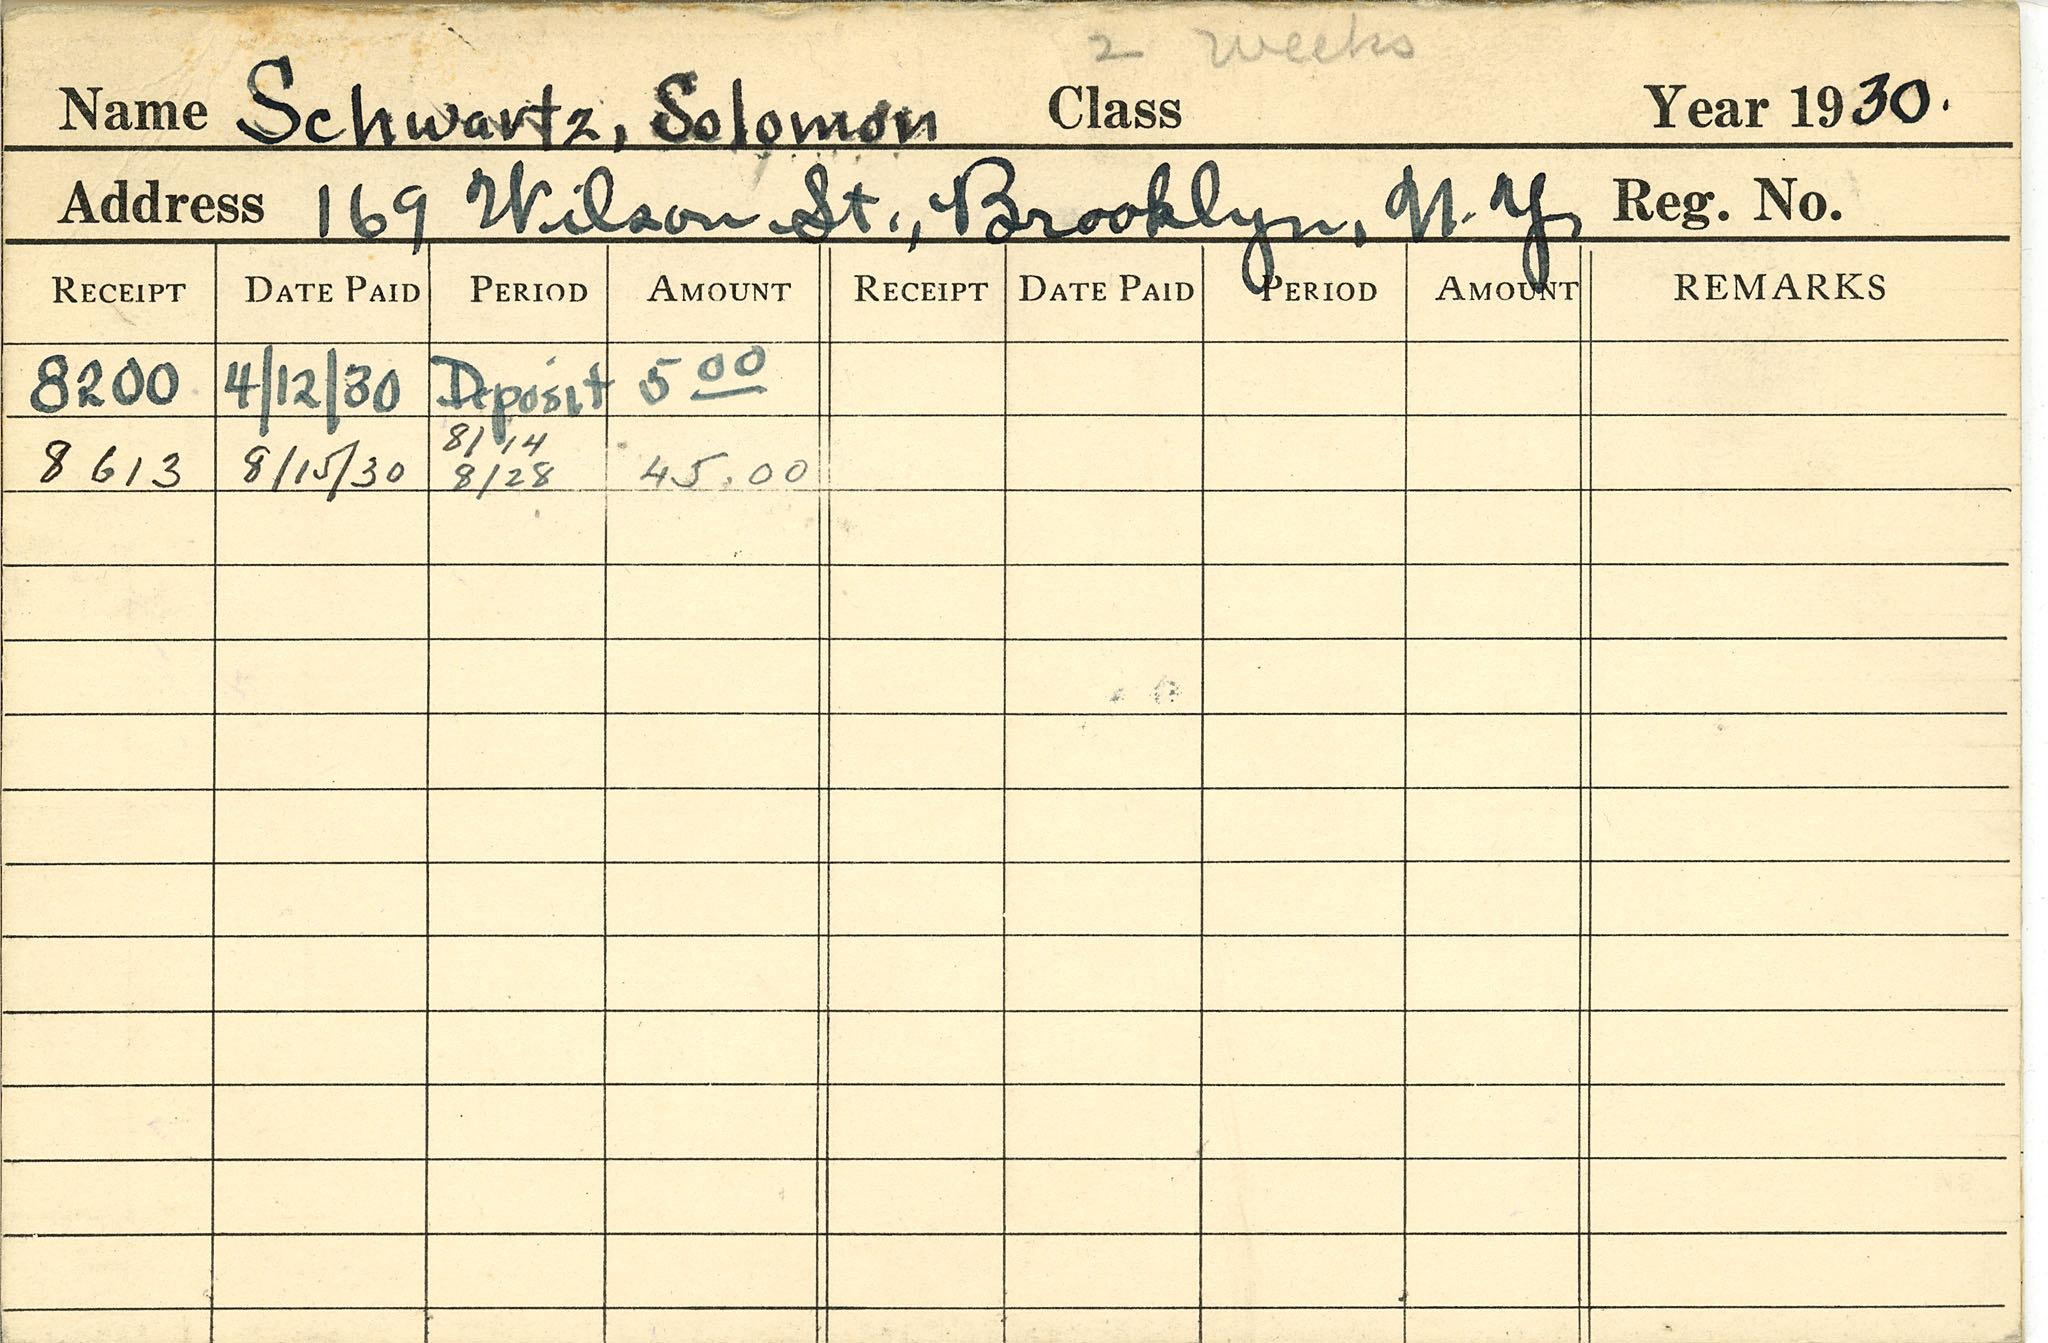 2 weeks
Name Schwartz, Solomon Class Year 1930.
Address 169 Wilson St., Brooklyn, N.Y. Reg. No.
RECEIPT DATE PAID PERIOD AMOUNT RECEIPT DATE PAID PERIOD AMOUNT REMARKS
8200 4/12/30 Deposit 5 00
8/14
8613 8/15/30 8/28 45.00